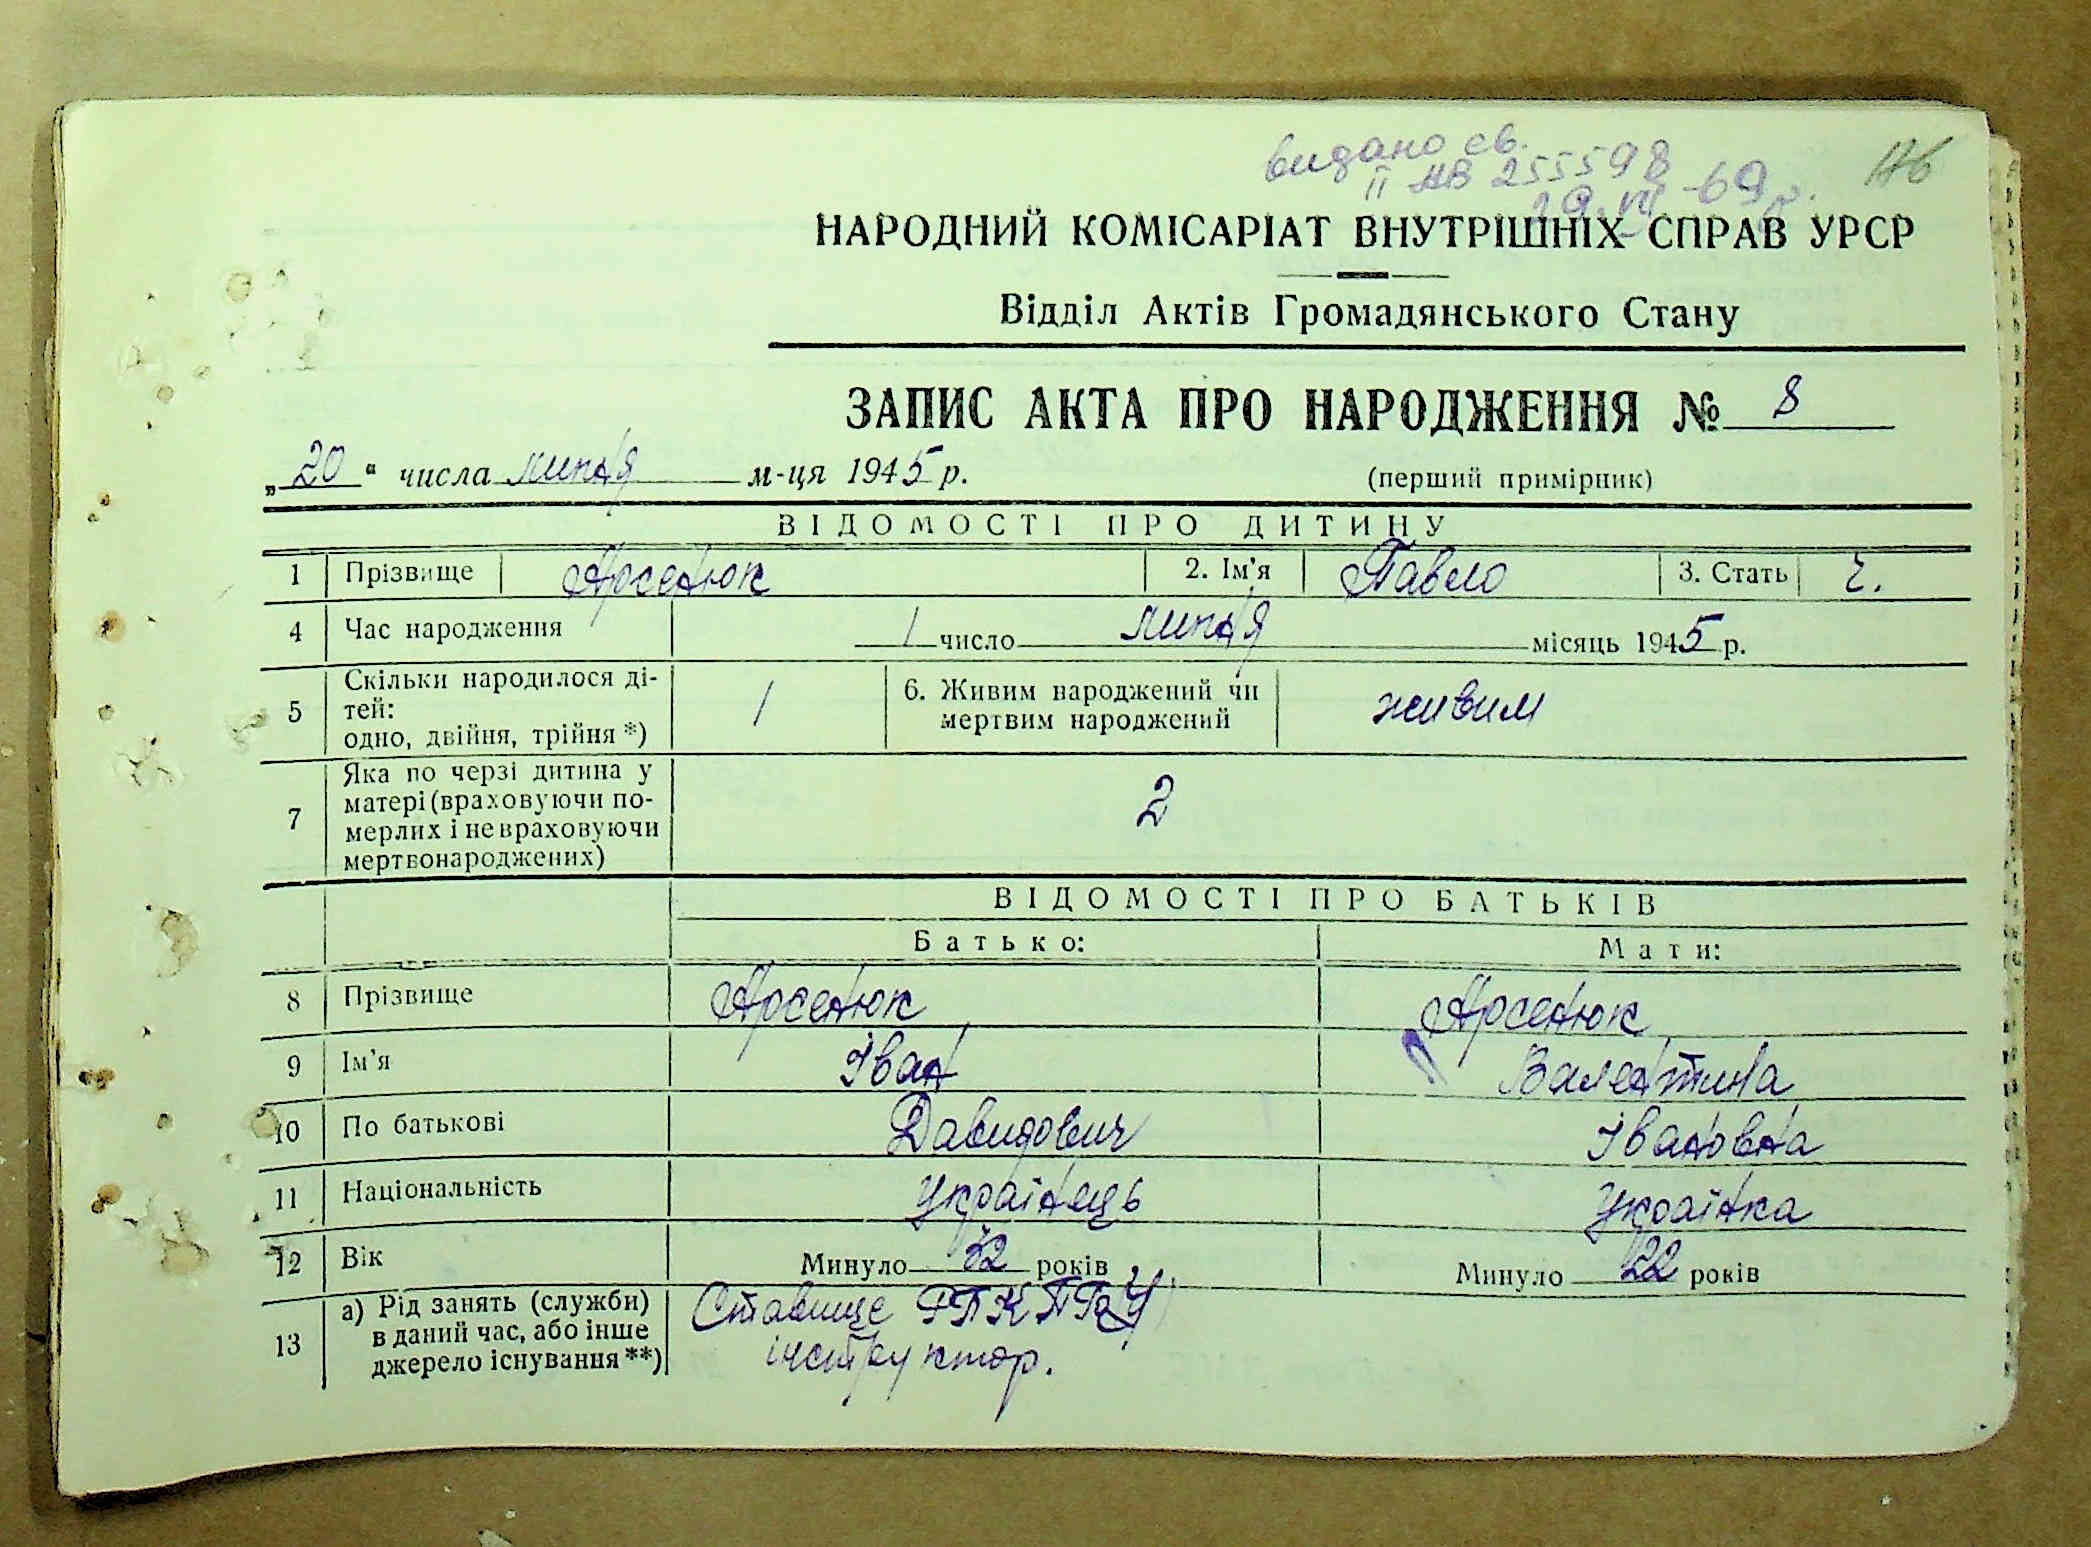 видано св.
ІІ АВ 255598
29.VII-69р.
НАРОДНИЙ КОМІСАРІАТ ВНУТРІШНІХ СПРАВ УРСР
Відділ Актів Громадянського Стану
ЗАПИС АКТА ПРО НАРОДЖЕННЯ № 8
„20“ числа липня м-ця 1945 р. (перший примірник)
ВІДОМОСТІ ПРО ДИТИНУ
1 Прізвище Арсенюк 2. Ім'я Павло 3. Стать ч.
4 Час народження 1 число липня місяць 1945 р.
5 Скільки народилося ді-
тей:
одно, двійня, трійня *) 1 6. Живим народжений чи
мертвим народжений живим
7 Яка по черзі дитина у
матері (враховуючи по-
мерлих і не враховуючи
мертвонароджених) 2
ВІДОМОСТІ ПРО БАТЬКІВ
Батько: Мати:
8 Прізвище Арсенюк Арсенюк
9 Ім'я Іван Валентина
10 По батькові Давидович Івановна
11 Національність Українець Українка
12 Вік Минуло 32 років Минуло 22 років
13 а) Рід занять (служби)
в даний час, або інше
джерело існування **) Ставище РПК П(б)У
інструктор.